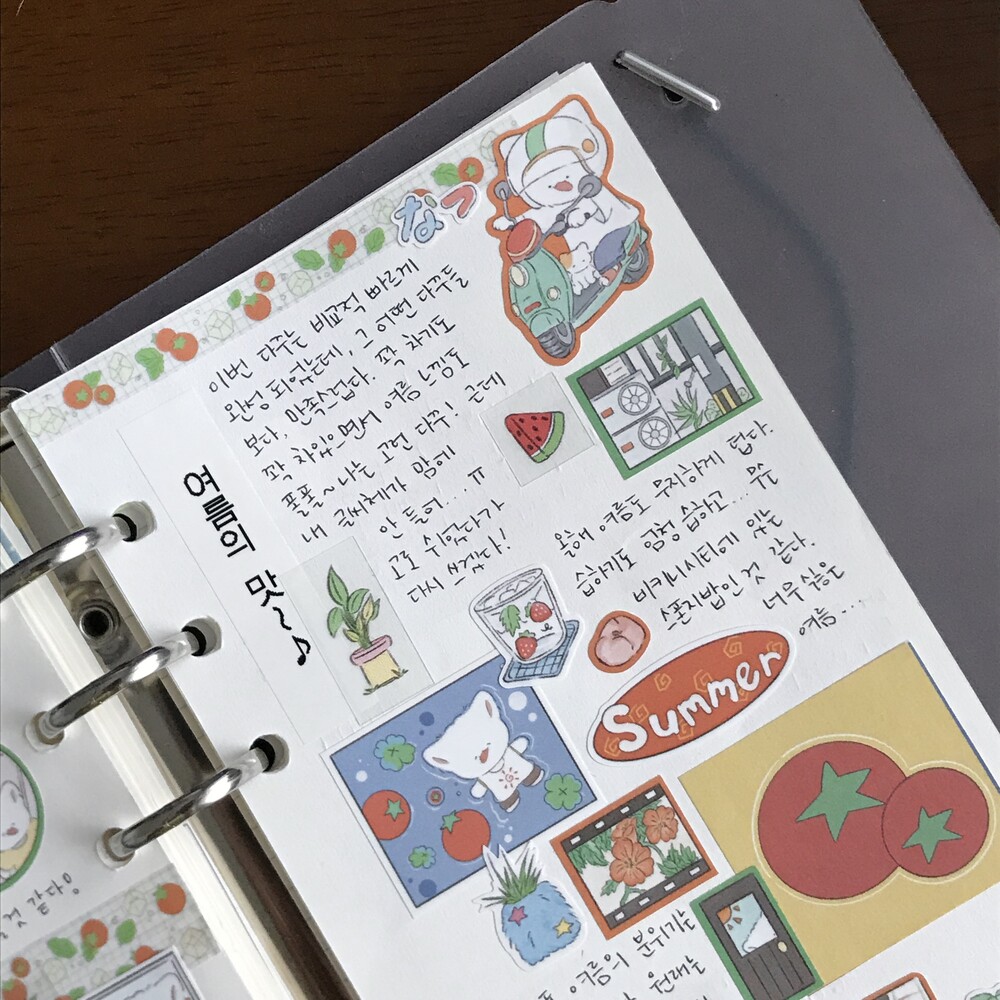 なつ
이번 다꾸는 비교적 빠르게
완성 되었는데, 그 어떤 다꾸들
보다, 만족스럽다. 꽉 차기도
꽉 차있으면서 여름 느낌도
폴폴~ 나는 그런 다꾸! 근데
내 글씨체가 맘에
안 들어... ㅠ
고로 쉬었다가
다시 쓰겠다!
여름이 맛~♪
올해 여름도 무지하게 덥다.
습하기도 엄청 습하고... 무슨
비키니시티에 있는
스폰지밥인 것 같다.
너무 싫은
여름...
Summer
여름의 분위기는
원래는
것 같다